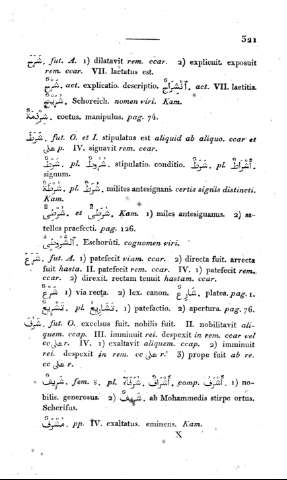 521
شَرَحَ. fut. A. 1) dilatavit rem. ccar. 2) explicuit. exposuit
rem. ccar. VII. laetatus est.
شَرْحٌ. act. explicatio. descriptio. act. VII. laetitia.
شُرَيْحٌ. Schoreich. nomen viri. Kam.
شِرْذِمَةٌ. coetus. manipulus. pag. 74.
شَرَطَ. fut. O. et I. stipulatus est aliquid ab aliquo. ccar et
على p. IV. signavit rem. ccar.
شَرْطٌ. pl. شُرُوطٌ. stipulatio. conditio. شَرَطٌ. pl. أَشْرَاطٌ.
signum.
شُرْطَةٌ. pl. شُرَطٌ. milites antesignani certis signis distincti.
Kam.
et شُرْطِىٌّ. Kam. 1) miles antesignanus. 2) sa-
telles praefecti. pag. 126.
Eschorúti. cognomen viri.
شَرَعَ. fut. A. 1) patefecit viam. ccar. 2) directa fuit. arrecta
fuit hasta. II. patefecit rem. ccar. IV. 1) patefecit rem.
ccar. 2) direxit. rectam tenuit hastam. ccar.
شَرْعٌ 1) via recta. 2) lex. canon. شَارِعٌ. platea. pag. 1.
تَشْرِيعٌ. pl. تَشَارِيعُ. 1) patefactio. 2) apertura. pag. 76.
شَرُفَ. fut. O. excelsus fuit. nobilis fuit. II. nobilitavit ali-
quem. ccap. III. imminuit rei. despexit in rem. ccar vel
cc على r. IV. 1) exaltavit aliquem. ccap. 2) imminuit
rei. despexit in rem. cc على r. 3) prope fuit ab re.
cc على r.
شَرِيفٌ. fem. ة. pl. أَشْرَافٌ. شُرَفَاءُ. comp. أَشْرَفُ. 1) no-
bilis. generosus. 2) شَرِيفٌ. ab Mohammedis stirpe ortus.
Scherifus.
مُشْرِفٌ. pp. IV. exaltatus. eminens. Kam.
X